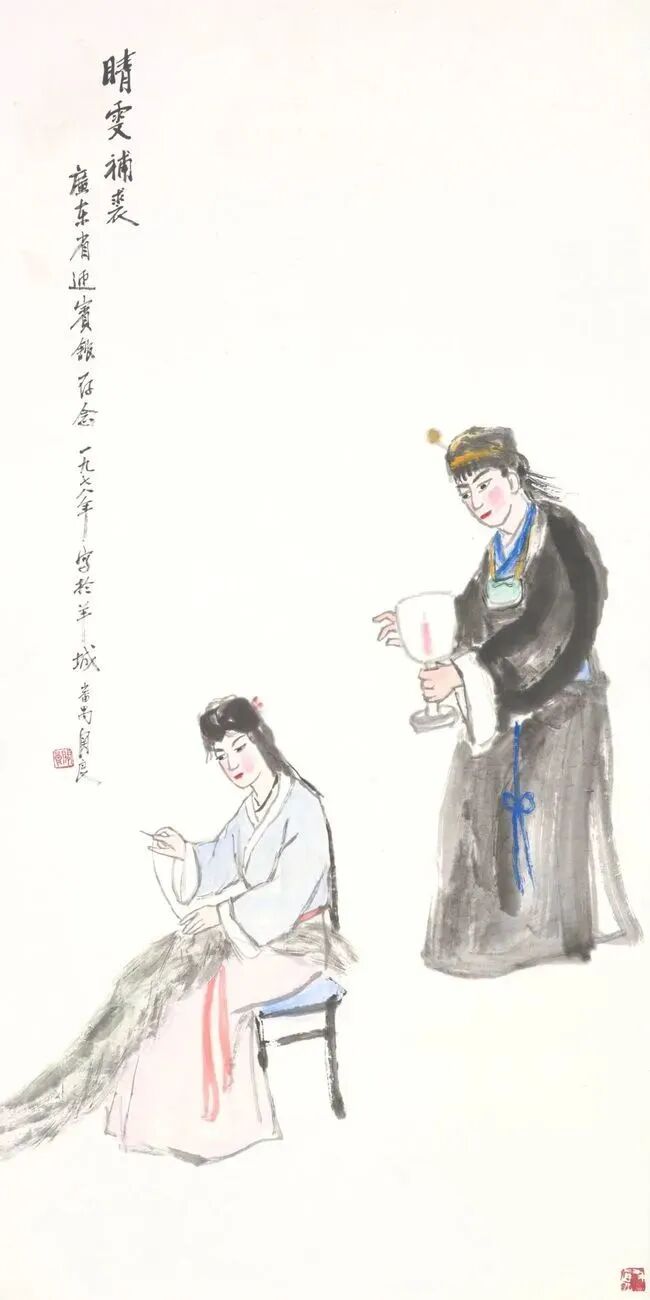 晴雯補裘
廣东省迎賓館存念 一九七八年 写於羊城 番禺